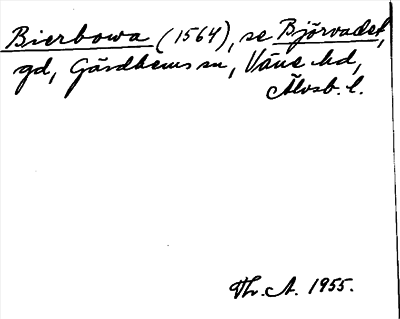 Bierbowa (1564), se Björvadet,
gd, Gärdhems sn, Väne hd,
Älvsb. l.
Thr. A. 1955.